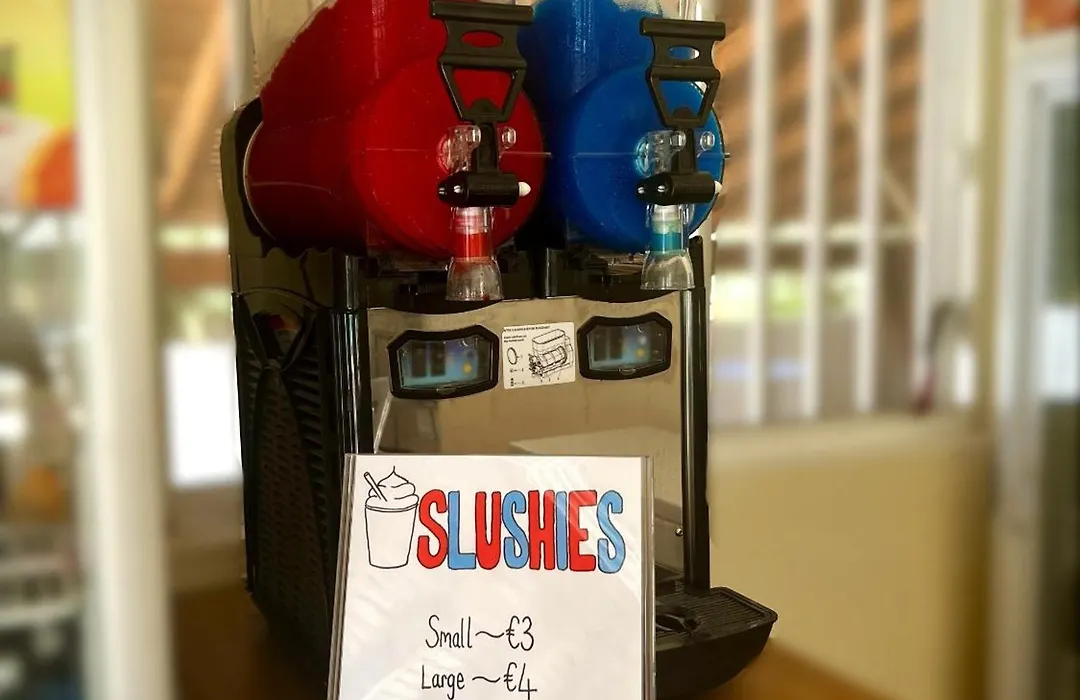 SLUSHIES
Small ~ €3
Large ~ €4